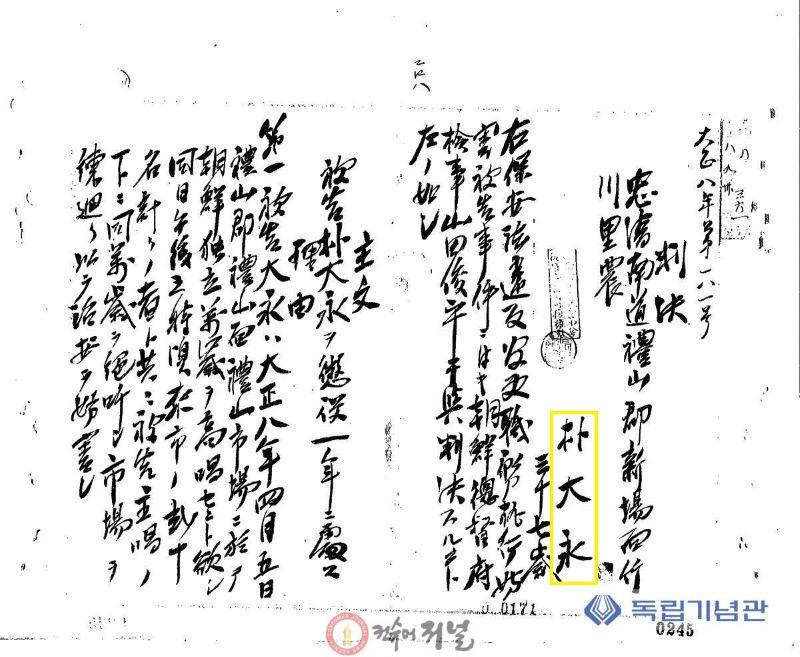 大正八年第一八一号
判決
忠清南道禮山郡新場面行
川里農
朴大永
三十七歳
右保安法違反官吏職務執行妨
害被告事件ニ付キ朝鮮總督府
檢事山田俊平干與判決スルコト
左ノ如シ
主文
被告朴大永ヲ懲役一年ニ處ス
理由
第一被告大永ハ大正八年四月五日
禮山郡禮山面禮山市場ニ於テ
朝鮮独立萬歳ヲ高唱セント欲シ
同日午後三時頃来市ノ数十
名計リノ者ト共ニ被告主唱ノ
下ニ同萬歳ヲ絶叫シ市場ヲ
練廻リ以テ治安ヲ妨害シ
0171
0245
독립기념관
저널